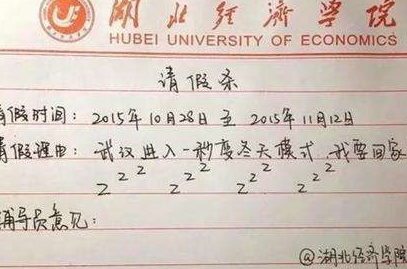 湖北经济学院
HUBEI UNIVERSITY OF ECONOMICS
请假条
请假时间：2015年10月28日至2015年11月12日
请假理由：武汉进入一秒变冬天模式，我要回家
zzzz zzzz zzzz zzzz
辅导员意见：
@湖北经济学院